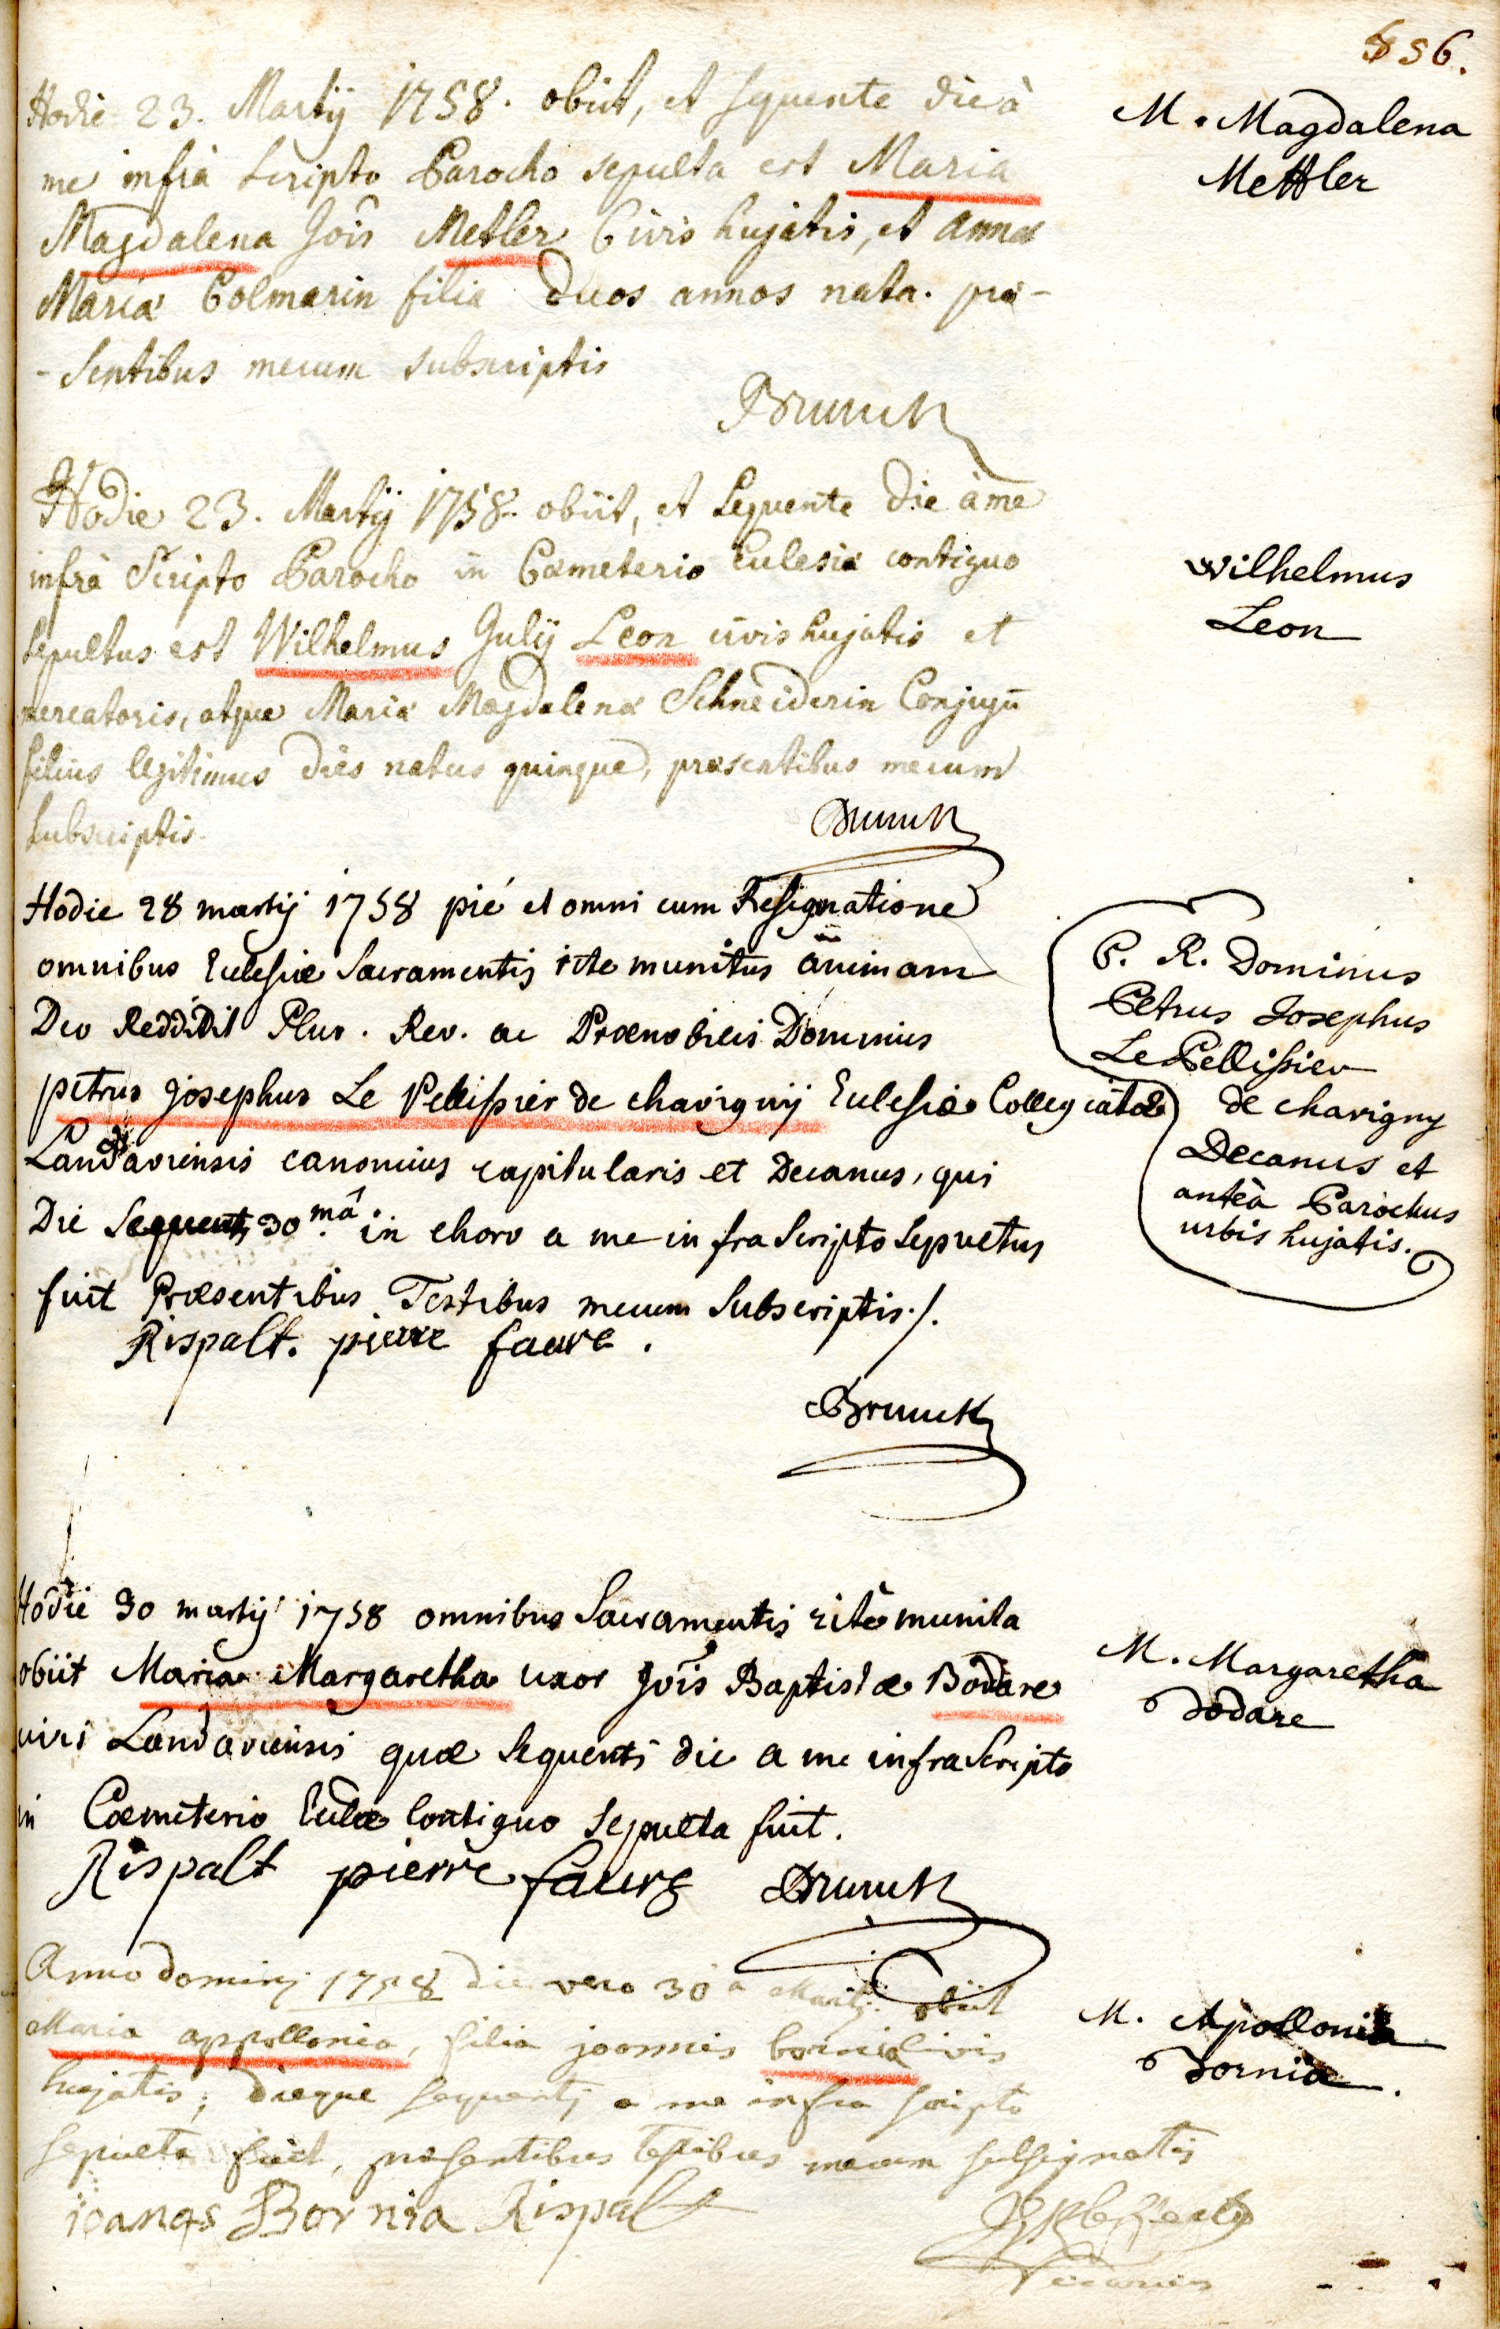 856.
Hodie 23. Martij 1758. obiit, et sequente die à
me infrà scripto Parocho sepulta est Maria
Magdalena Jois Metler Civis hujatis, et Annæ
Mariæ Colmarin filia duos annos nata. præ-
-sentibus mecum subscriptis
Brunck
M. Magdalena
Mettler
Hodie 23. Martij 1758. obiit, et sequente die à me
infrà Scripto Parocho in Cœmeterio Eclesiæ contiguo
sepultus est Wilhelmus Julij Leon civis hujatis et
mercatoris, atque Mariæ Magdalenæ Schneiderin Conjugū
filius legitimus dies natus quinque, præsentibus mecum
subscriptis
Brunck
Wilhelmus
Leon
Hodie 28 martij 1758 pié et omni cum Resignatione
omnibus Eclesiæ Sacramentis rite munitus animam
Deo Reddidit Plur. Rev. ac Prænobilis Dominus
petrus josephus Le Pellissier de chavignij Eclesiæ Collegiatæ
Landaviensis canonicus capitularis et Decanus, qui
Die Sequenti 30.mâ in choro a me infra Scripto Sepultus
fuit Præsentibus Testibus mecum Subscriptis./.
Rispalt. pierre faure.
Brunck
P. R. Dominus
Petrus Josephus
Le Pellissier
de chavigny
Decanus et
anteà Parochus
urbis hujatis.
Hodie 30 martij 1758 omnibus Sacramentis ritè munita
obiit Maria Margaretha uxor Jois Baptistæ Bodare
viri Landaviensis quæ Sequenti die a me infra Scripto
in Cœmeterio Eclæ Contiguo Sepulta fuit.
Rispalt pierre faure Brunck
M. Margaretha
Bodare
Anno dominj 1758 die vero 30a Martij obiit
Maria appollonia, filia joannis bornia Civis
hujatis; dieque sequentj a me infra scripto
sepulta fuit, præsentibus testibus mecum subsignatis
ioanas Bornia Rispalt
Vicarius
M. Apollonia
Bornia.